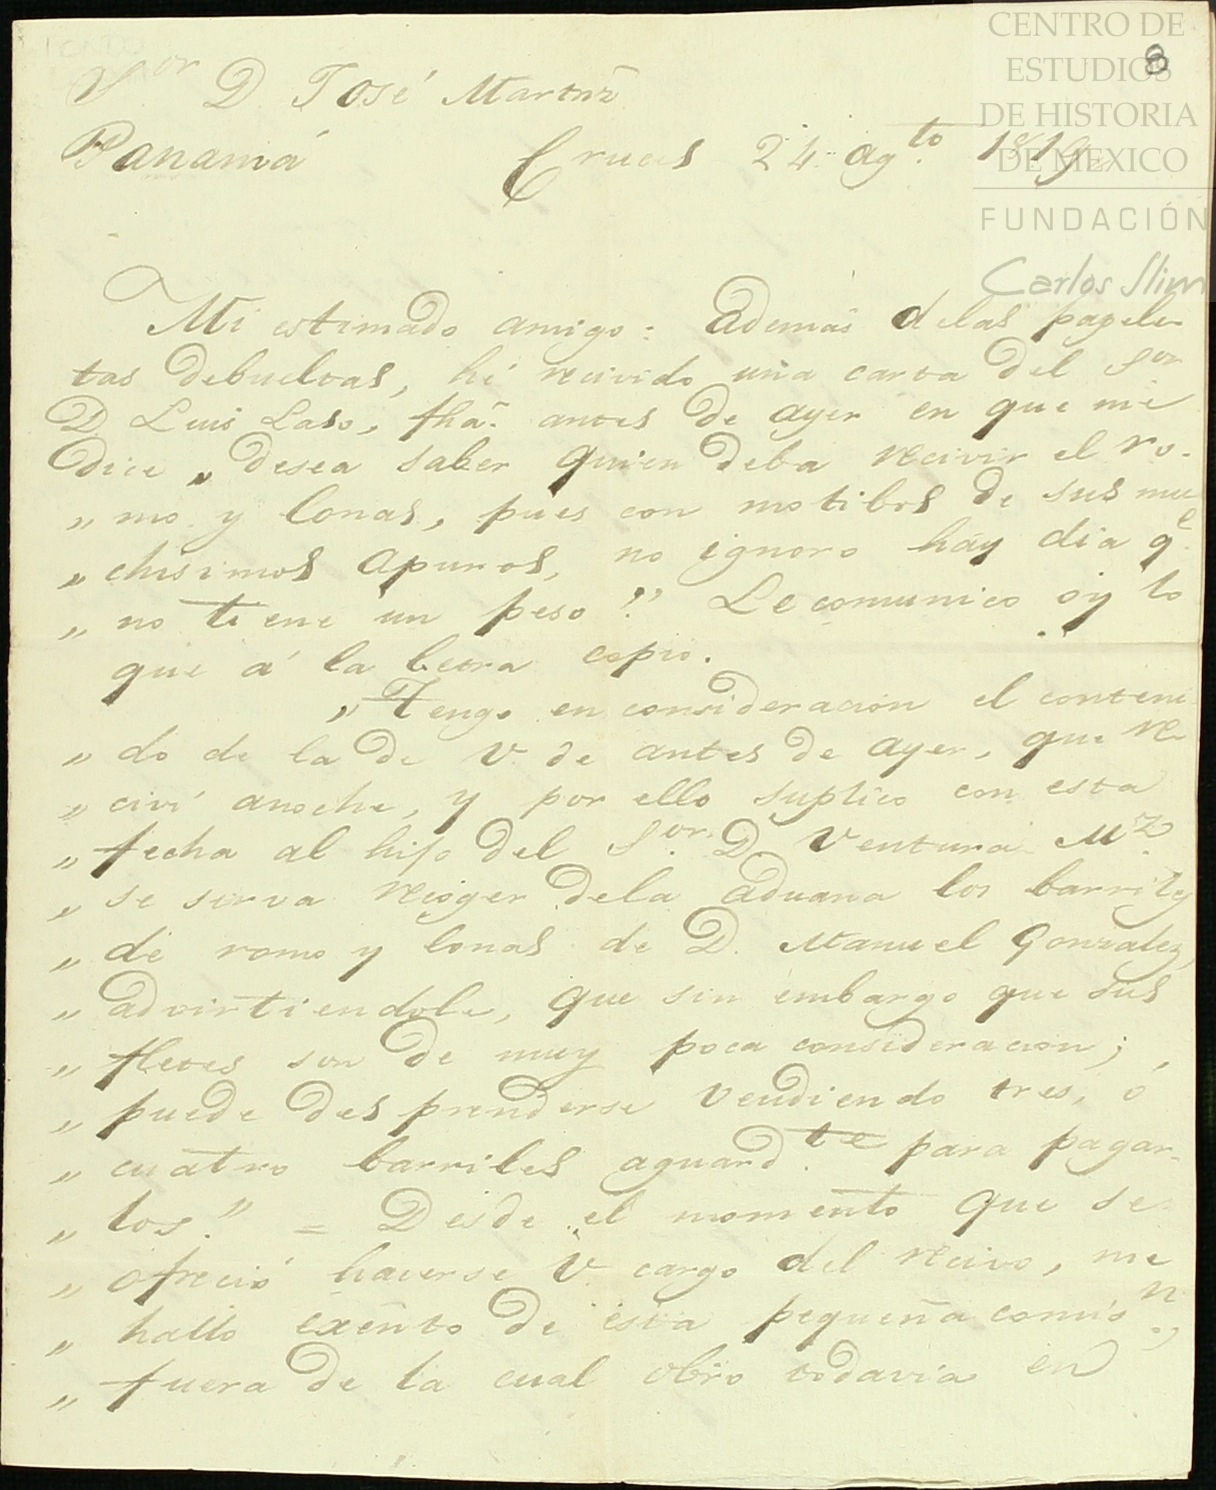 CENTRO DE
ESTUDIOS
DE HISTORIA
DE MEXICO
FUNDACIÓN
Carlos Slim
8
Sor D José Martnz
Panamá Cruces 24 agto 1819
Mi estimado amigo: Además delas papele-
tas debueltas, hé recivido una carta del Sor
D Luis Laso, fha antes de ayer en que me
dice „ desea saber quien deba recivir el ro-
„ mo y lonas, pues con motibos de sus mu
„ chisimos apuros, no ignoro háy dia qe
„ no tiene un peso." Le comunico oy lo
que á la letra copio.
„ Tengo en consideracion el conteni
„ do de la de V. de antes de ayer, que re
„ civí anoche, y por ello suplico con esta
„ fecha al hijo del Sor D. Ventura Mz
„ se sirva recojer dela aduana los barriles
„ de romo y lonas de D. Manuel Gonzalez,
„ advirtiendole, que sin embargo que sus
„ fletes son de muy poca consideracion;
„ puede desprenderse vendiendo tres, ó
„ cuatro barriles aguardte para pagar-
„ los." = Desde el momento que se
„ ofreció hacerse V. cargo del recivo, me
„ hallo exento de esta pequeña comison,
„ fuera de la cual obro todavia en